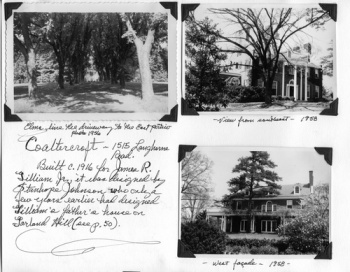 Elms line the driveway to the East portico
photo 1956
Coaltercroft - 1515 Langhorne
Road.
Built c. 1916 for James R.
Gilliam Jr., it was designed by
Stanhope Johnson who only a
few years earlier had designed
Gilliam's father's house on
Garland Hill (see p. 50).
-View from southeast- 1958
- West façade - 1958 -